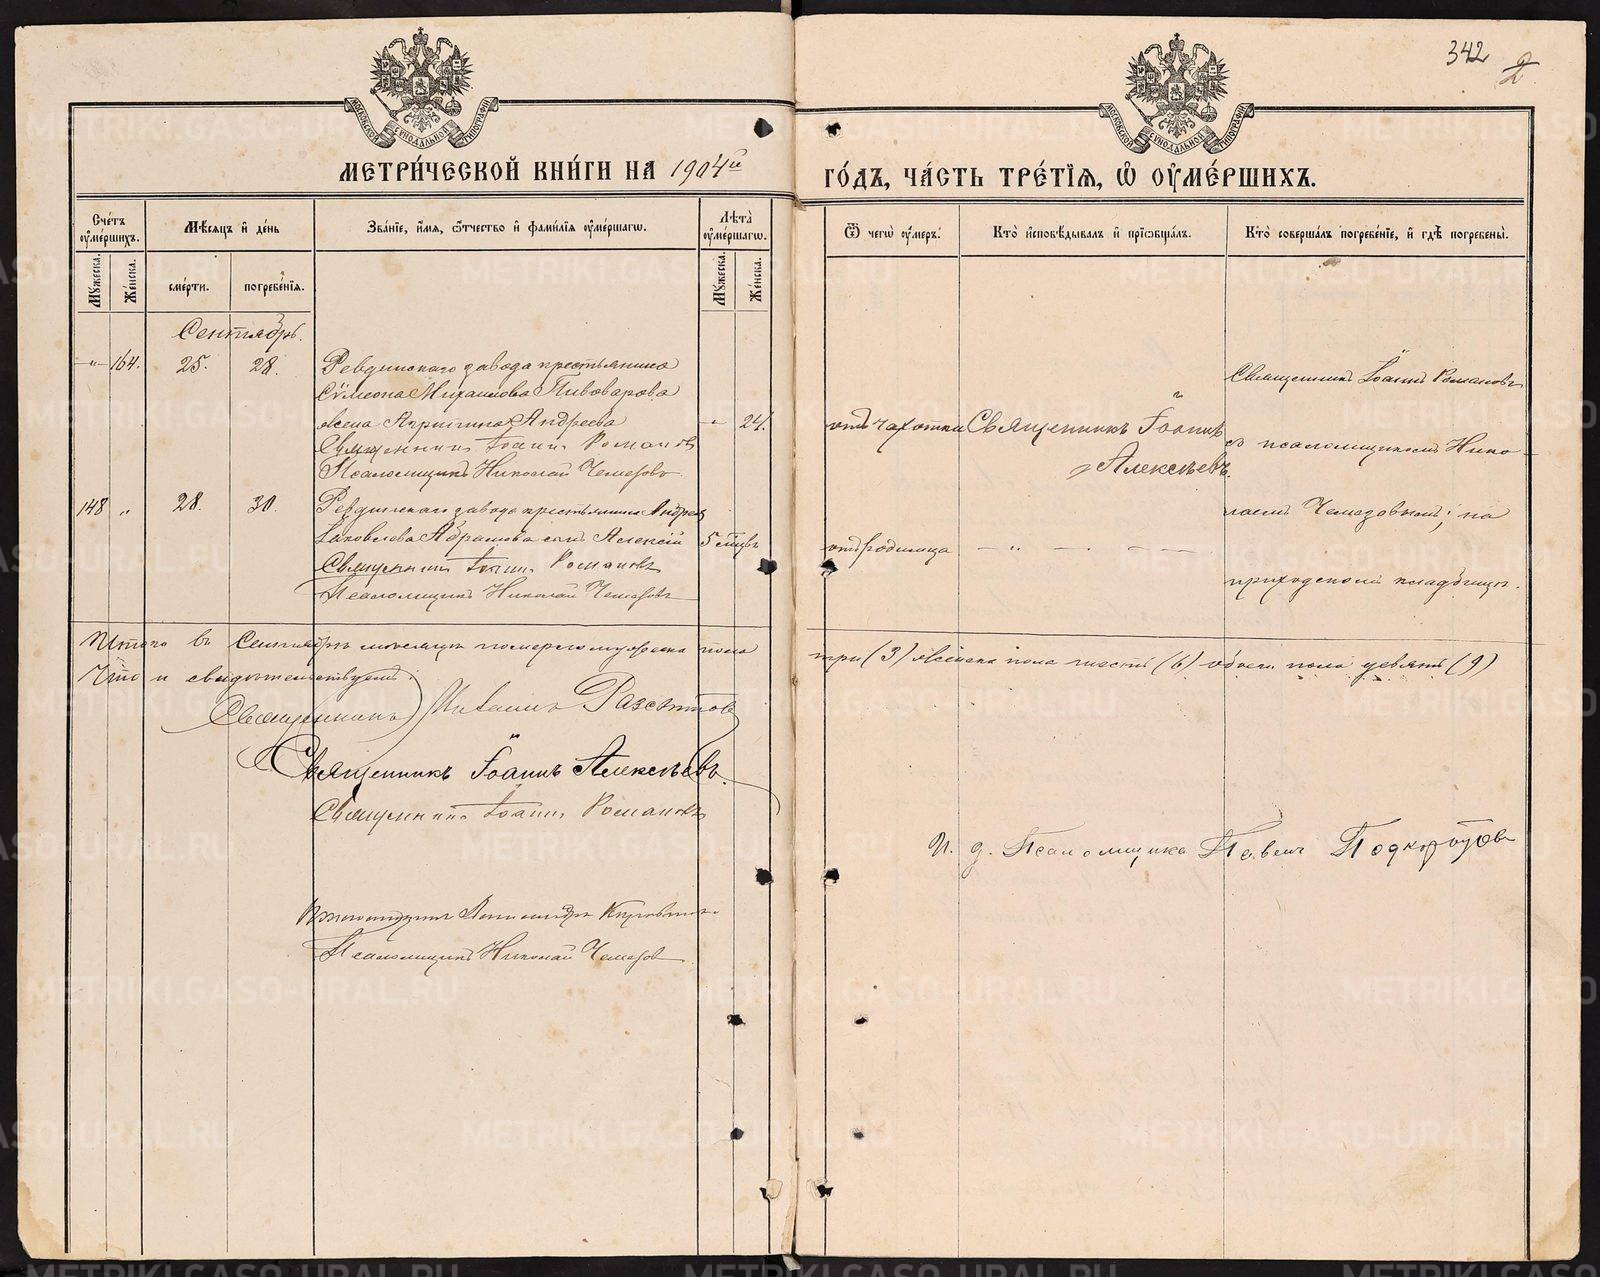 342
2
МОСКОВСКОЙ СѴНОДАЛЬНОЙ ТИПОГРАФІИ
МОСКОВСКОЙ СѴНОДАЛЬНОЙ ТИПОГРАФІИ
МЕТРИ́ЧЕСКОЙ КНИ́ГИ НА 1904й
ГО́ДЪ, ЧА́СТЬ ТРЕ́ТІЯ, Ѽ ОУМЕ́РШИХЪ.
Сче́тъ оуме́ршихъ.
Му́жеска.
Же́нска.
Мѣ́сяцъ и де́нь
сме́рти.
погребе́нія.
Зва́ніе, и́мя, ѻ́тчество и фами́лія оуме́ршагѡ.
Лѣта̀ оуме́ршагѡ.
Му́жеска.
Же́нска.
Ѿ чегѡ̀ оу́меръ.
Кто̀ и҆сповѣ́дывалъ и пріѡбща́лъ.
Кто̀ соверша́лъ погребе́ніе, и гдѣ̀ погребены̀.
Сентябрь.
-"- 164. 25. 28. Ревдинскаго завода крестьянина
Сѷмеона Михаилова Пивоварова
жена Андреева -"- 24.
Священникъ Іоаннъ Романовъ
Псаломщикъ Николай Чемезовъ
отъ чахотки
Священникъ Іоаннъ
Алексѣевъ.
Священникъ Іоаннъ Романовъ
съ псаломщикомъ Нико-
лаемъ Чемезовымъ; на
приходскомъ кладбищѣ.
148 " 28. 30. Ревдинскаго завода крестьянина Андрея
Іаковлева Абрамова сынъ Алексій 5 мцвъ
Священникъ Іоаннъ Романовъ
Псаломщикъ Николай Чемезовъ
отъ родимца - " - -
Итого въ Сентябрѣ мѣсяцѣ померло мужеска пола
три (3) женска пола шесть (6) обоего пола девять (9)
Что и свидѣтельствуемъ:
Священникъ Михаилъ
Священникъ Іоаннъ Алексѣевъ.
Священникъ Іоаннъ Романовъ
И. д. Псаломщика Павелъ Подкорытовъ
Псаломщикъ Николай Чемезовъ
METRIKI.GASO-URAL.RU